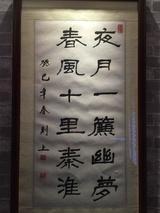 夜月一簾幽夢
春風十里秦淮
癸巳年春